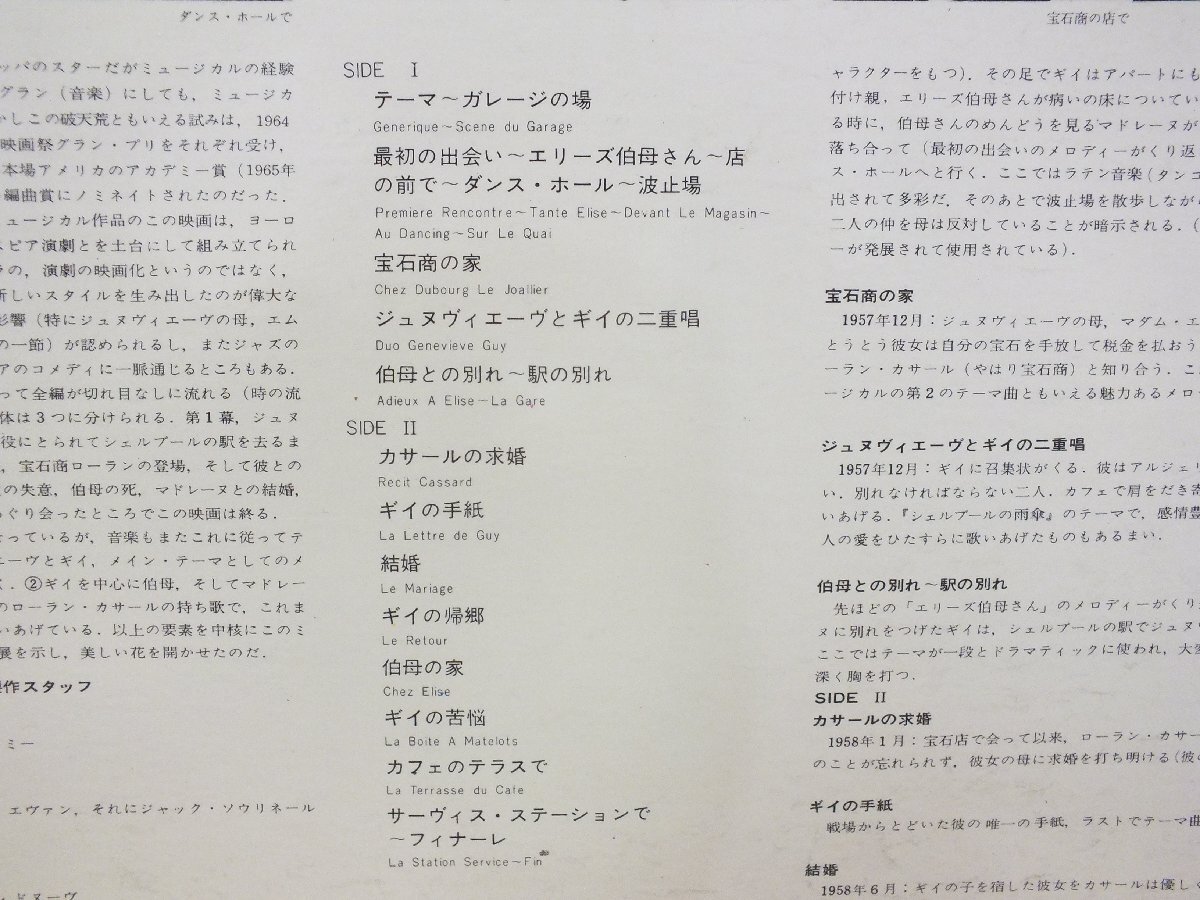 ダンス・ホールで
ッパのスターだがミュージカルの経験
グラン（音楽）にしても，ミュージカ
かしこの破天荒ともいえる試みは，1964
映画祭グラン・プリをそれぞれ受け，
本場アメリカのアカデミー賞（1965年
編曲賞にノミネイトされたのだった．
ュージカル作品のこの映画は，ヨーロ
スピア演劇とを土台にして組み立てられ
ラの，演劇の映画化というのではなく，
新しいスタイルを生み出したのが偉大な
影響（特にジュヌヴィエーヴの母，エム
の一節）が認められるし，またジャズの
アのコメディに一脈通じるところもある．
って全編が切れ目なしに流れる（時の流
体は3つに分けられる．第1幕，ジュヌ
役にとられてシェルブールの駅を去るま
，宝石商ローランの登場，そして彼との
の失意，伯母の死，マドレーヌとの結婚，
めぐり会ったところでこの映画は終る．
なっているが，音楽もまたこれに従ってテ
エーヴとギイ，メイン・テーマとしてのメ
．②ギイを中心に伯母，そしてマドレー
のローラン・カサールの持ち歌で，これま
いあげている．以上の要素を中核にこのミ
展を示し，美しい花を開かせたのだ．
製作スタッフ
ミー
エヴァン，それにジャック・ソウリネール
・ドヌーヴ
SIDE I
テーマ～ガレージの場
Generique～Scene du Garage
最初の出会い～エリーズ伯母さん～店
の前で～ダンス・ホール～波止場
Premiere Rencontre～Tante Elise～Devant Le Magasin～
Au Dancing～Sur Le Quai
宝石商の家
Chez Dubourg Le Joailier
ジュヌヴィエーヴとギイの二重唱
Duo Genevieve Guy
伯母との別れ～駅の別れ
Adieux A Elise～La Gare
SIDE II
カサールの求婚
Recit Cassard
ギイの手紙
La Lettre de Guy
結婚
Le Mariage
ギイの帰郷
Le Retour
伯母の家
Chez Elise
ギイの苦悩
La Boite A Matelots
カフェのテラスで
La Terrasse du Cafe
サーヴィス・ステーションで
～フィナーレ
La Station Service～Fin
宝石商の店で
ャラクターをもつ）．その足でギイはアパートにも
付け親，エリーズ伯母さんが病いの床についてい
る時に，伯母さんのめんどうを見るマドレーヌが
落ち合って（最初の出会いのメロディーがくり返
ス・ホールへと行く．ここではラテン音楽（タンゴ
出されて多彩だ，そのあとで波止場を散歩しなが
二人の仲を母は反対していることが暗示される．（
ーが発展されて使用されている）．
宝石商の家
1957年12月：ジュヌヴィエーヴの母，マダム・エ
とうとう彼女は自分の宝石を手放して税金を払おう
ーラン・カサール（やはり宝石商）と知り合う．こ
ージカルの第2のテーマ曲ともいえる魅力あるメロ
ジュヌヴィエーヴとギイの二重唱
1957年12月：ギイに召集状がくる．彼はアルジェリ
い．別れなければならない二人．カフェで肩をだき寄
いあげる．『シェルブールの雨傘』のテーマで，感情豊
人の愛をひたすらに歌いあげたものもあるまい．
伯母との別れ～駅の別れ
先ほどの「エリーズ伯母さん」のメロディーがくり
ヌに別れをつげたギイは，シェルブールの駅でジュヌ
ここではテーマが一段とドラマティックに使われ，大変
深く胸を打つ．
SIDE II
カサールの求婚
1958年1月：宝石店で会って以来，ローラン・カサー
のことが忘れられず，彼女の母に求婚を打ち明ける（彼の
ギイの手紙
戦場からとどいた彼の唯一の手紙，ラストでテーマ曲
結婚
1958年6月：ギイの子を宿した彼女をカサールは優しく